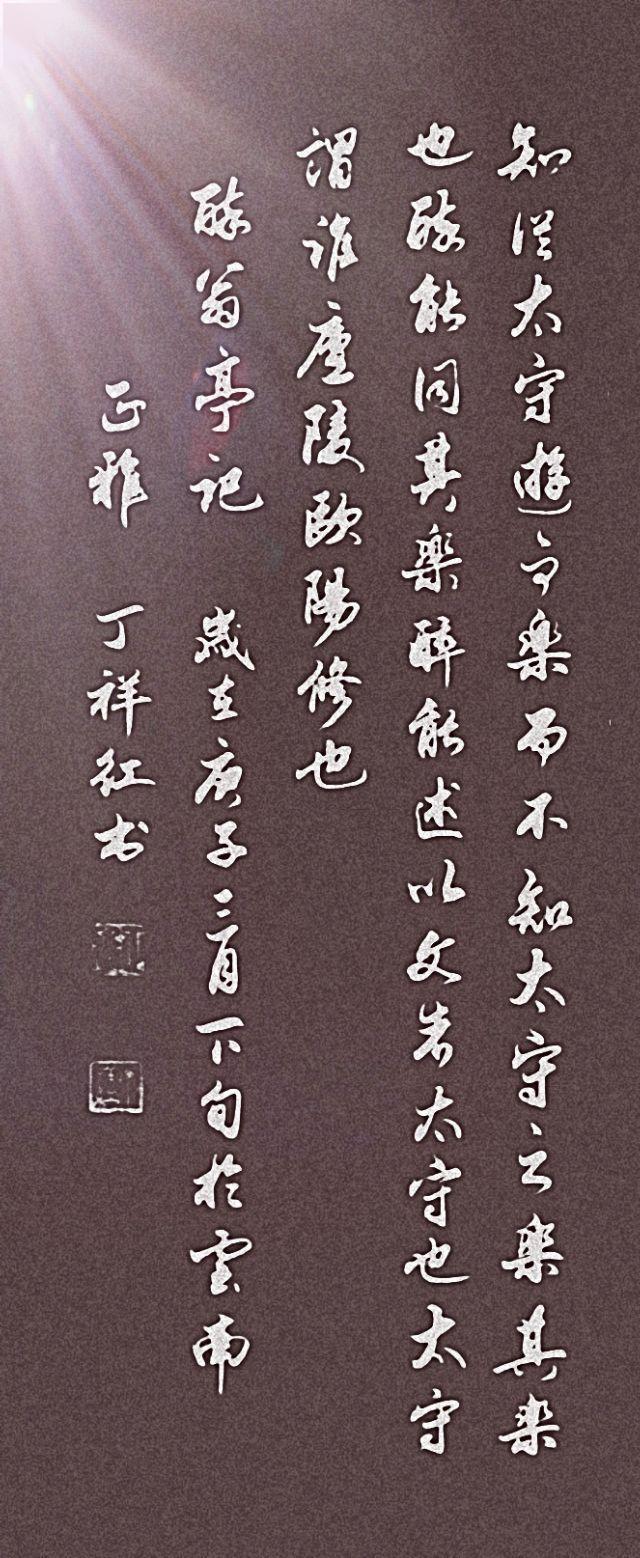 知從太守遊而樂而不知太守之樂其樂
也醉能同其樂醉能述以文者太守也太守
謂誰廬陵歐陽修也
醉翁亭記 歲在庚子三月下旬於雲南
正雅 丁祥红书